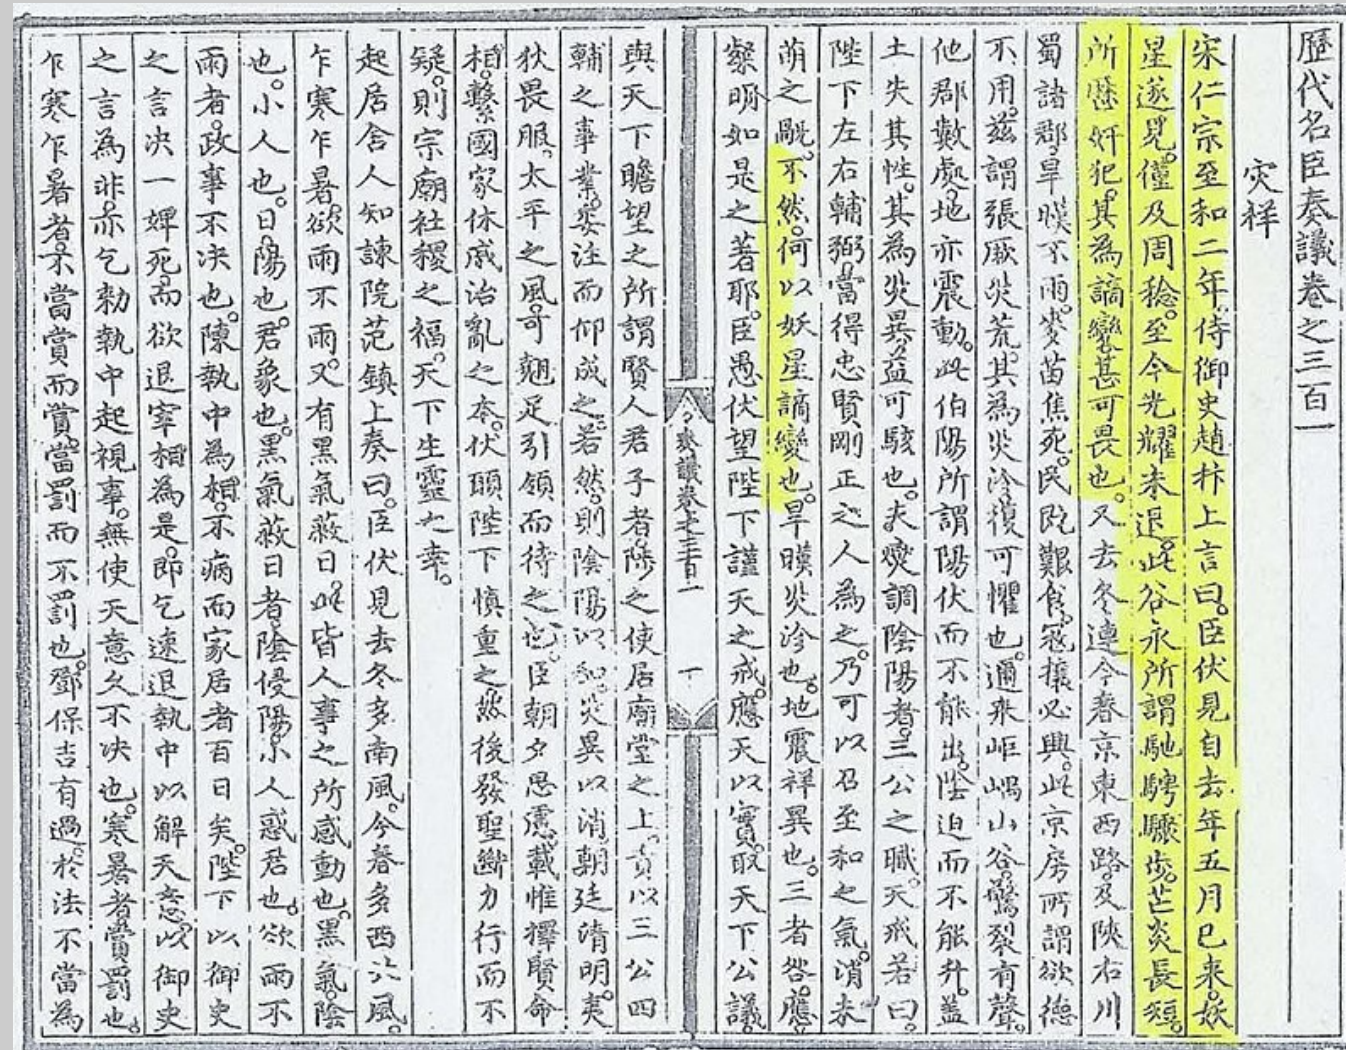 歷代名臣奏議卷之三百一
災祥
宋仁宗至和二年侍御史趙抃上言曰臣伏見自去年五月已来妖
星遂見僅及周稔至今光耀未退此谷永所謂馳騁驟步芒炎長短
所歷奸犯其為謫變甚可畏也又去冬連今春京東西路及陝右川
蜀諸郡旱暵不雨麥苗焦死民既艱食寇攘必興此京房所謂欲德
不用茲謂張厥災荒其為災沴復可懼也邇来岠嵎山谷驚裂有聲
他郡數處地亦震動此伯陽所謂陽伏而不能出陰迫而不能升蓋
土失其性其為災異益可駭也夫燮調陰陽者三公之職天戒若曰
陛下左右輔弼當得忠賢剛正之人為之乃可以召至和之氣消未
萌之戤不然何以妖星謫變也旱暵災沴也地震祥異也三者咎應
粲㫼如是之著耶臣愚伏望陛下謹天之戒應天以實取天下公議
與天下瞻望之所謂賢人君子者陟之使居廟堂之上責以三公四
輔之事業委注而仰成之若然則陰陽以和災異以消朝廷清明夷
狄畏服太平之風可翹足引領而待之也臣朝夕思慮載惟擇賢命
相繫國家休戚治亂之本伏願陛下慎重之然後發聖斷力行而不
疑則宗廟社稷之福天下生靈之幸
起居舍人知諫院范鎮上奏曰臣伏見去冬多南風今春多西北風
乍寒乍暑欲雨不雨又有黑氣蔽日此皆人事之所感動也黑氣陰
也小人也日陽也君象也黑氣蔽日者陰侵陽小人惑君也欲雨不
雨者政事不决也陳執中為相不病而家居者百日矣陛下以御史
之言决一婢死而欲退宰相為是即乞速退執中以解天意以御史
之言為非亦乞勑執中起視事無使天意久不决也寒暑者賞罰也
乍寒乍暑者不當賞而賞當罰而不罰也鄧保吉有過於法不當為
奏議卷之三百一